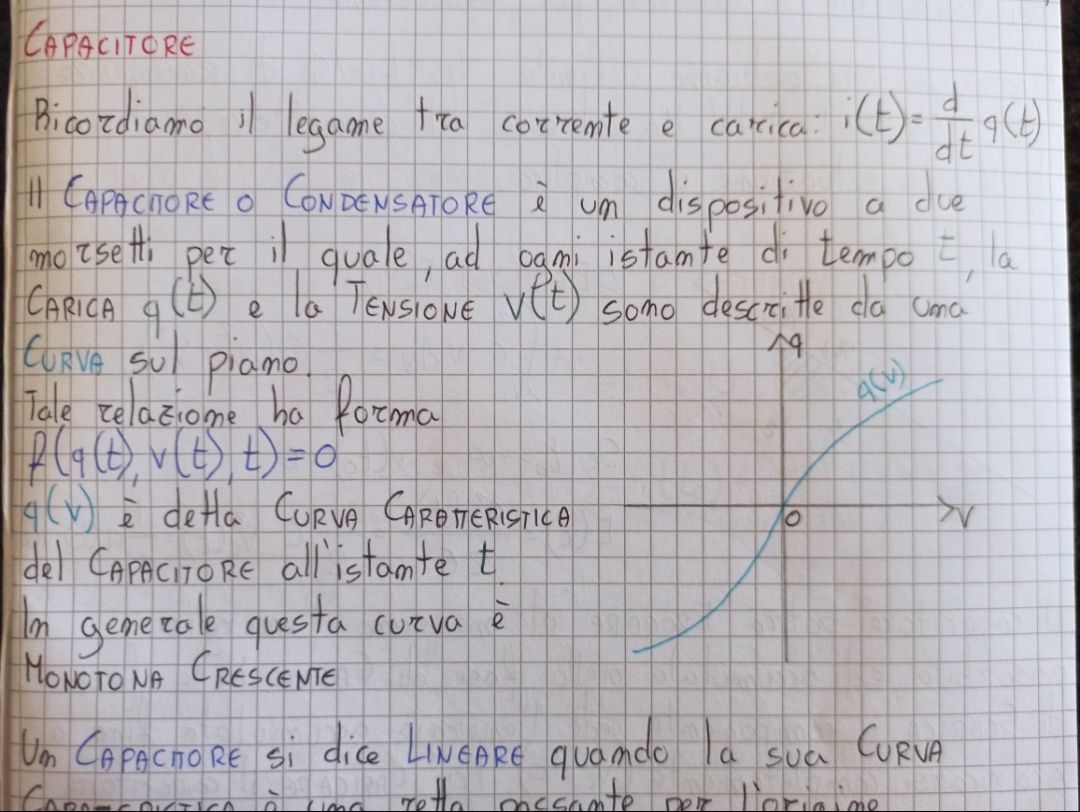 CAPACITORE
Ricordiamo il legame tra corrente e carica: i(t)= d/dt q(t)
Il CAPACITORE O CONDENSATORE è un dispositivo a due
morsetti per il quale, ad ogni istante di tempo t, la
CARICA q(t) e la TENSIONE v(t) sono descritte da una
CURVA sul piano.
q
q(v)
Tale relazione ha forma
f(q(t), v(t), t)=0
q(v) è detta CURVA CARATTERISTICA
O
V
del CAPACITORE all'istante t.
In generale questa curva è
MONOTONA CRESCENTE
Un CAPACITORE si dice LINEARE quando la sua CURVA
CARATTERISTICA è una retta passante per l'origine